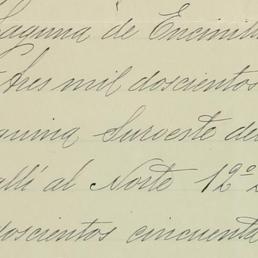 Laguna de Encinil
Tres mil doscientos
quina Suroeste de
allí al Norte 12°
doscientos cincuenta